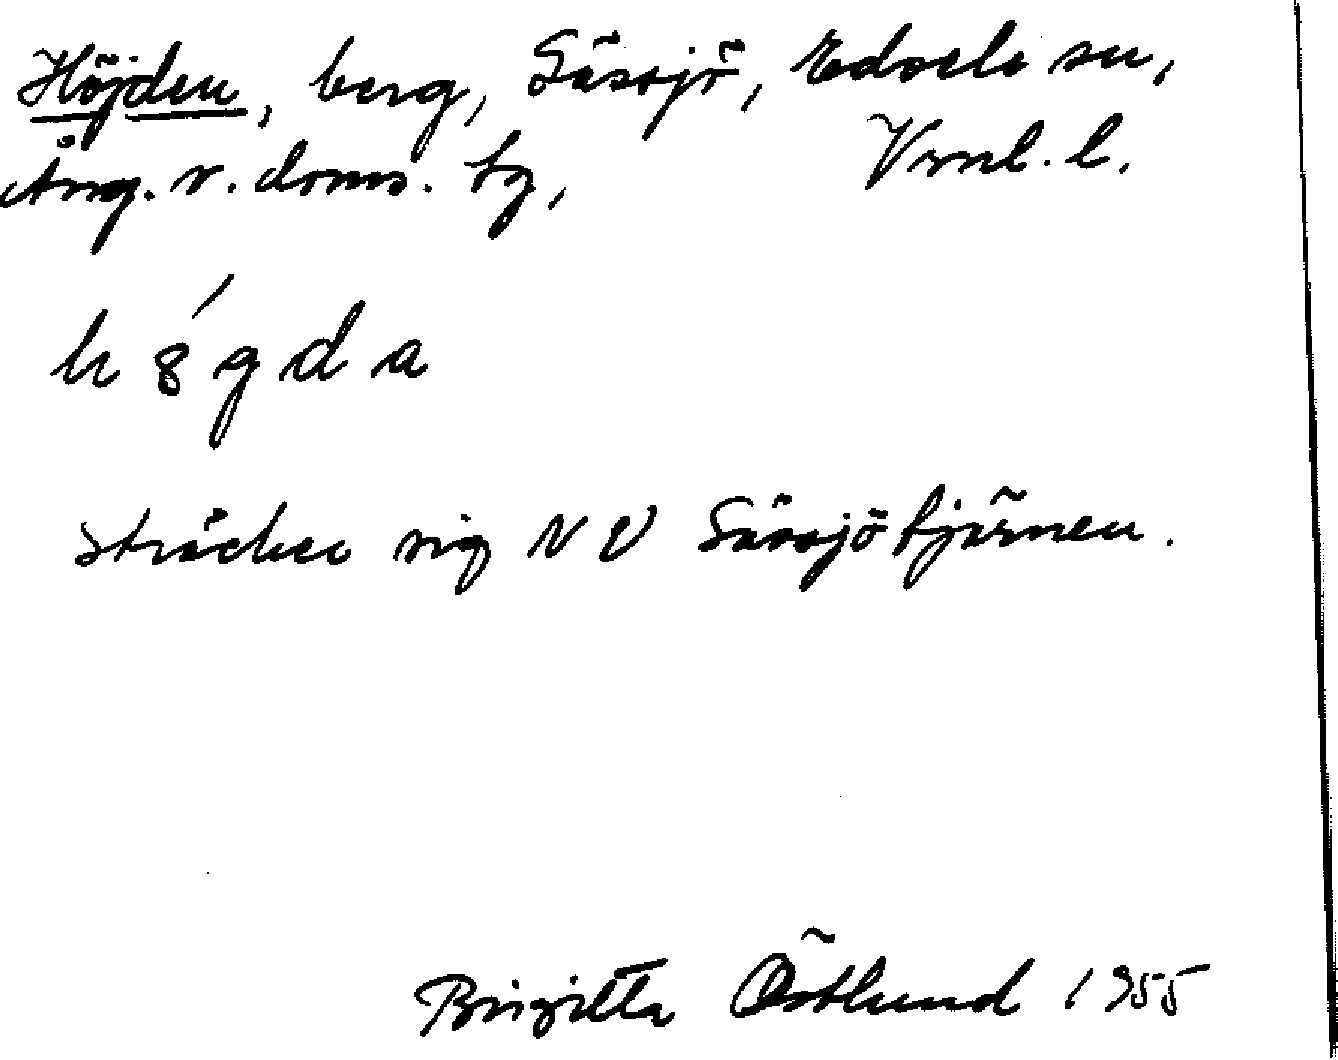 Höjden, berg, Sässjö, Edsele sn,
Ång. v. doms. tg, Vrnl. l.
h 8́ g d a
sträcker sig NV Sässjötjärnen.
Birgitta Östlund 1955